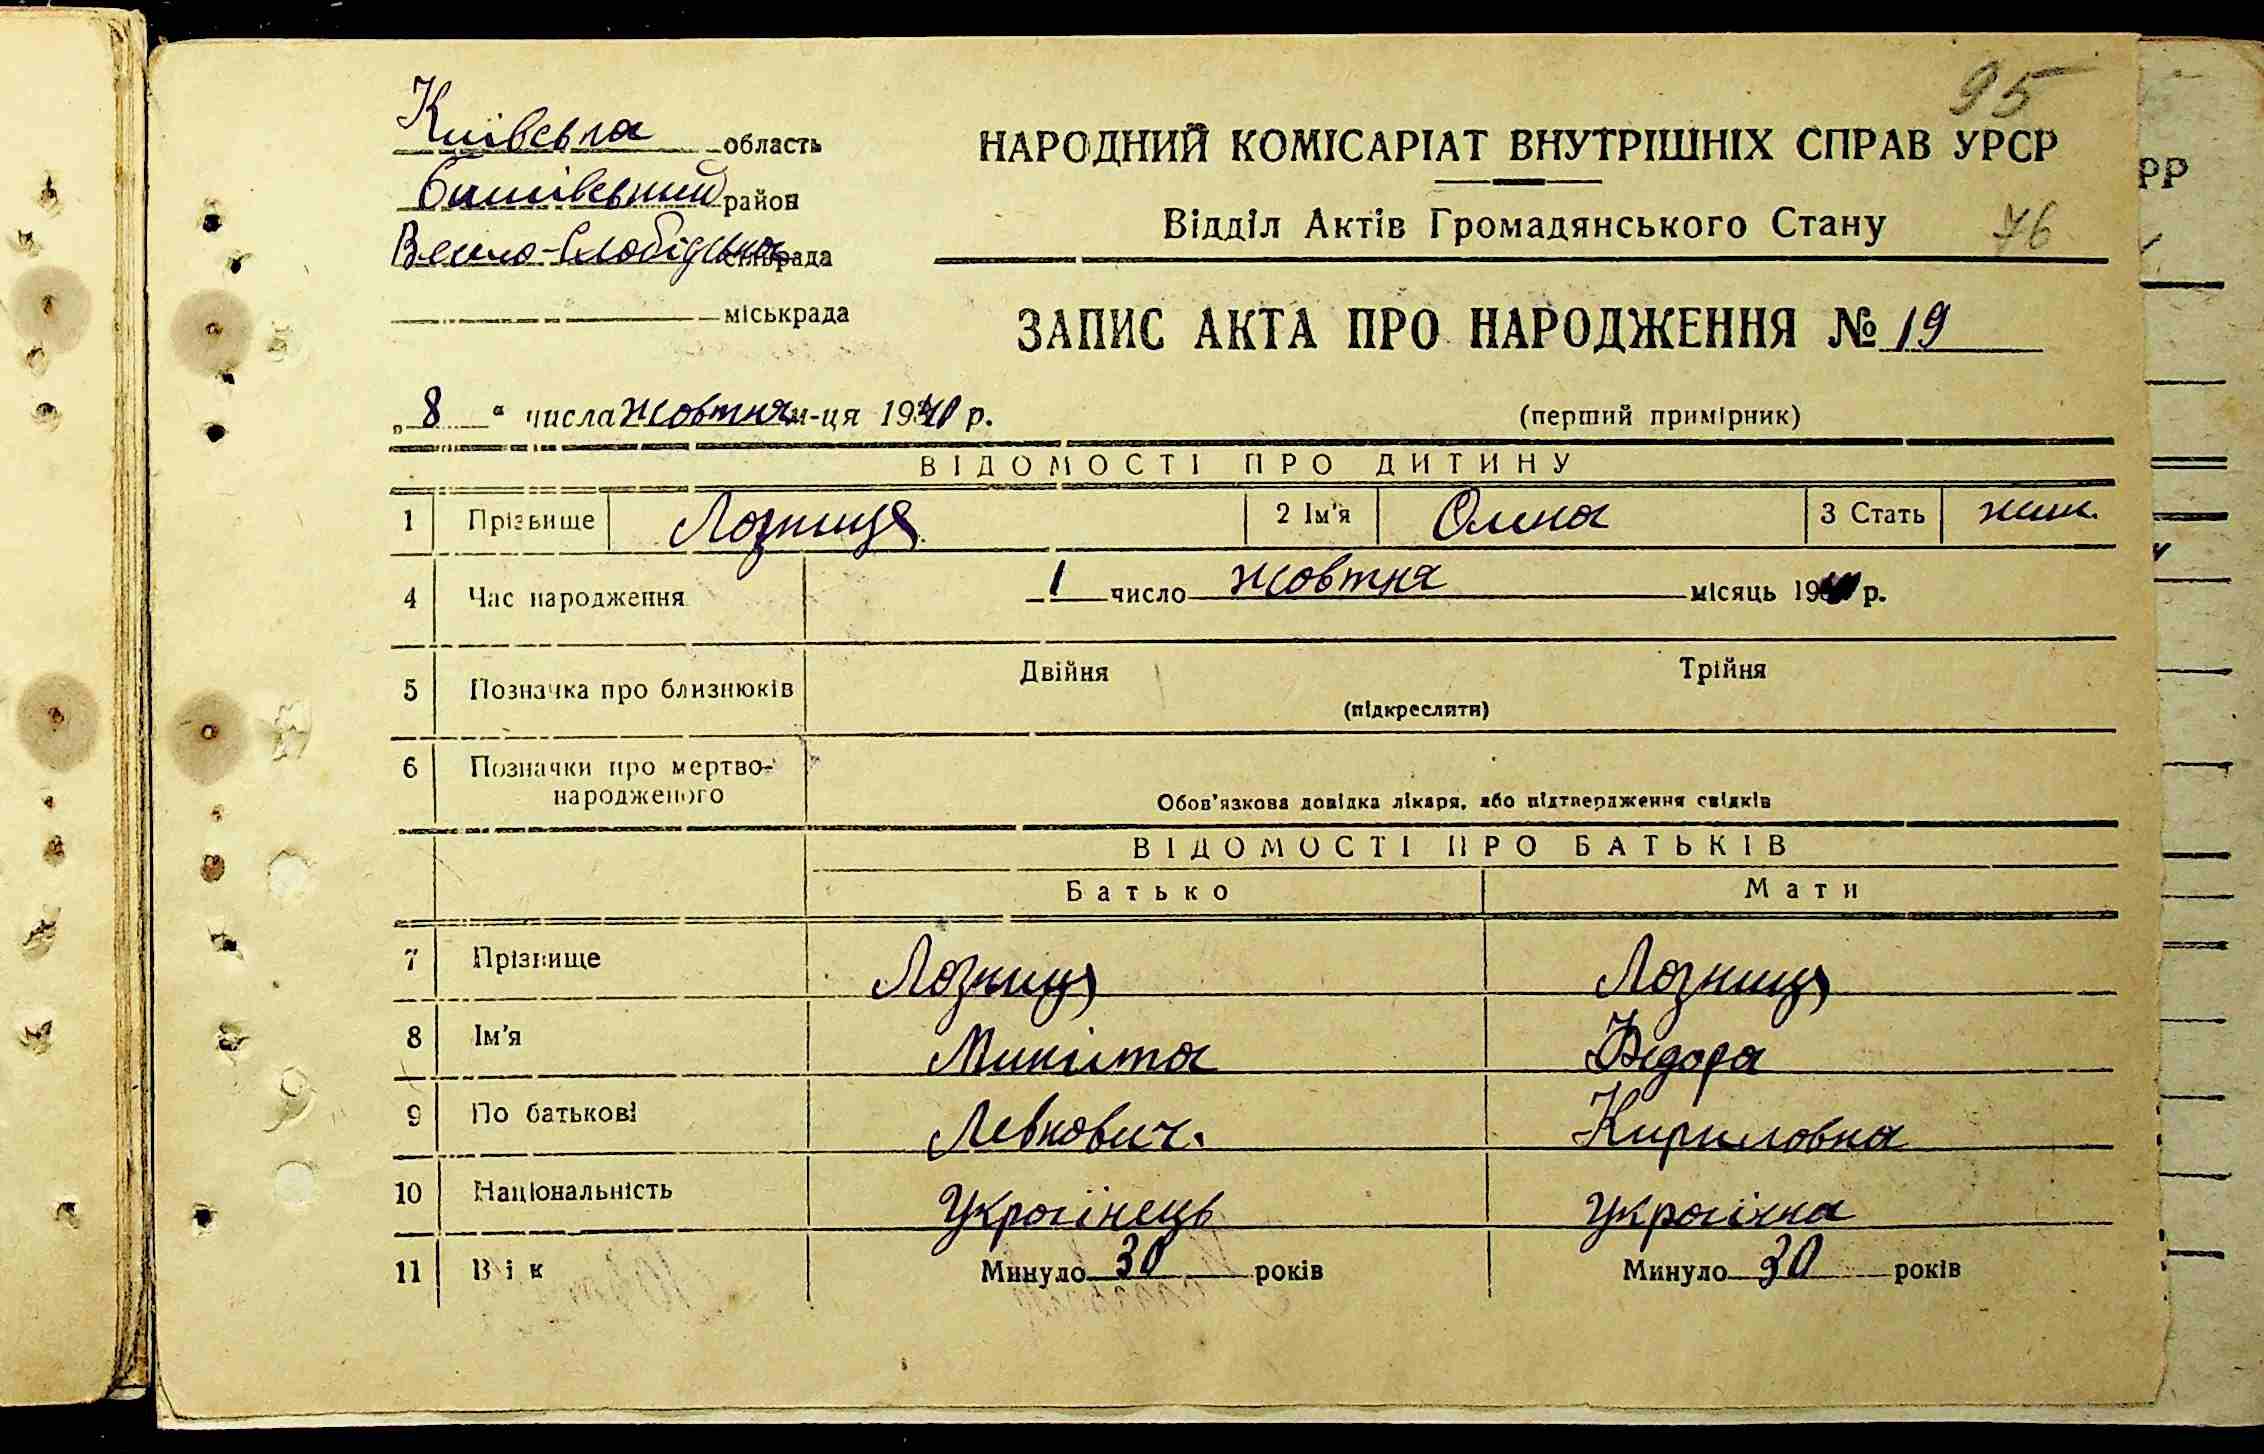 95
Київська область
район
сільрада
міськрада
НАРОДНИЙ КОМІСАРІАТ ВНУТРІШНІХ СПРАВ УРСР
Відділ Актів Громадянського Стану
76
ЗАПИС АКТА ПРО НАРОДЖЕННЯ № 19
„8“ числа жовтня м-ця 1940 р.
(перший примірник)
ВІДОМОСТІ ПРО ДИТИНУ
1 Прізвище Лозниця 2 Ім'я Олена 3 Стать жін.
4 Час народження 1 число жовтня місяць 1940 р.
5 Позначка про близнюків Двійня Трійня
(підкреслити)
6 Позначки про мертво-
народженого
Обов'язкова довідка лікаря, або підтвердження свідків
ВІДОМОСТІ ПРО БАТЬКІВ
Батько Мати
7 Прізвище Лозниця Лозниця
8 Ім'я Микита Федора
9 По батькові Левкович. Кириловна
10 Національність Українець Українка
11 Вік Минуло 30 років Минуло 30 років
РР